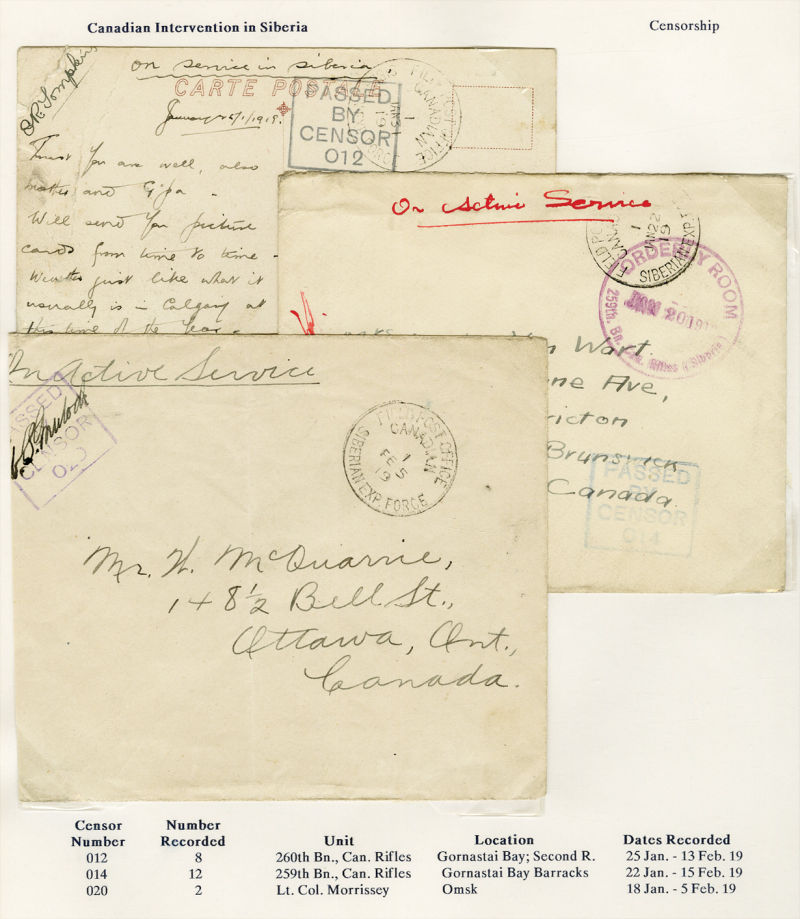 Canadian Intervention in Siberia
Censorship
On Service in Siberia
CARTE POSTALE
January 26/1/1919.
PASSED
BY
CENSOR
012
FIELD POST OFFICE
CANADIAN
1
JAN 31
19
Trust You are well, also
mother and
Will send You picture
cards from time to time -
Weather just like what it
usually is in Calgary at
this time of the Year -
On Active Service
1
JAN 22
19
SIBERIAN EXP. F
ORDERLY ROOM
JAN 20 1919
259th. Bn. Can. Rifles (Siberia)
Wart
ne Ave,
icton
Brunswick
Canada.
PASSED
BY
CENSOR
014
On Active Service
PASSED
CENSOR
020
FIELD POST OFFICE
CANADIAN
1
FE 5
19
SIBERIAN EXP. FORCE
Mr. W. McQuarrie,
148½ Bell St.,
Ottawa, Ont.,
Canada.
Censor Number Number Recorded Unit Location Dates Recorded
012 8 260th Bn., Can. Rifles Gornastai Bay; Second R. 25 Jan. - 13 Feb. 19
014 12 259th Bn., Can. Rifles Gornastai Bay Barracks 22 Jan. - 15 Feb. 19
020 2 Lt. Col. Morrissey Omsk 18 Jan. - 5 Feb. 19